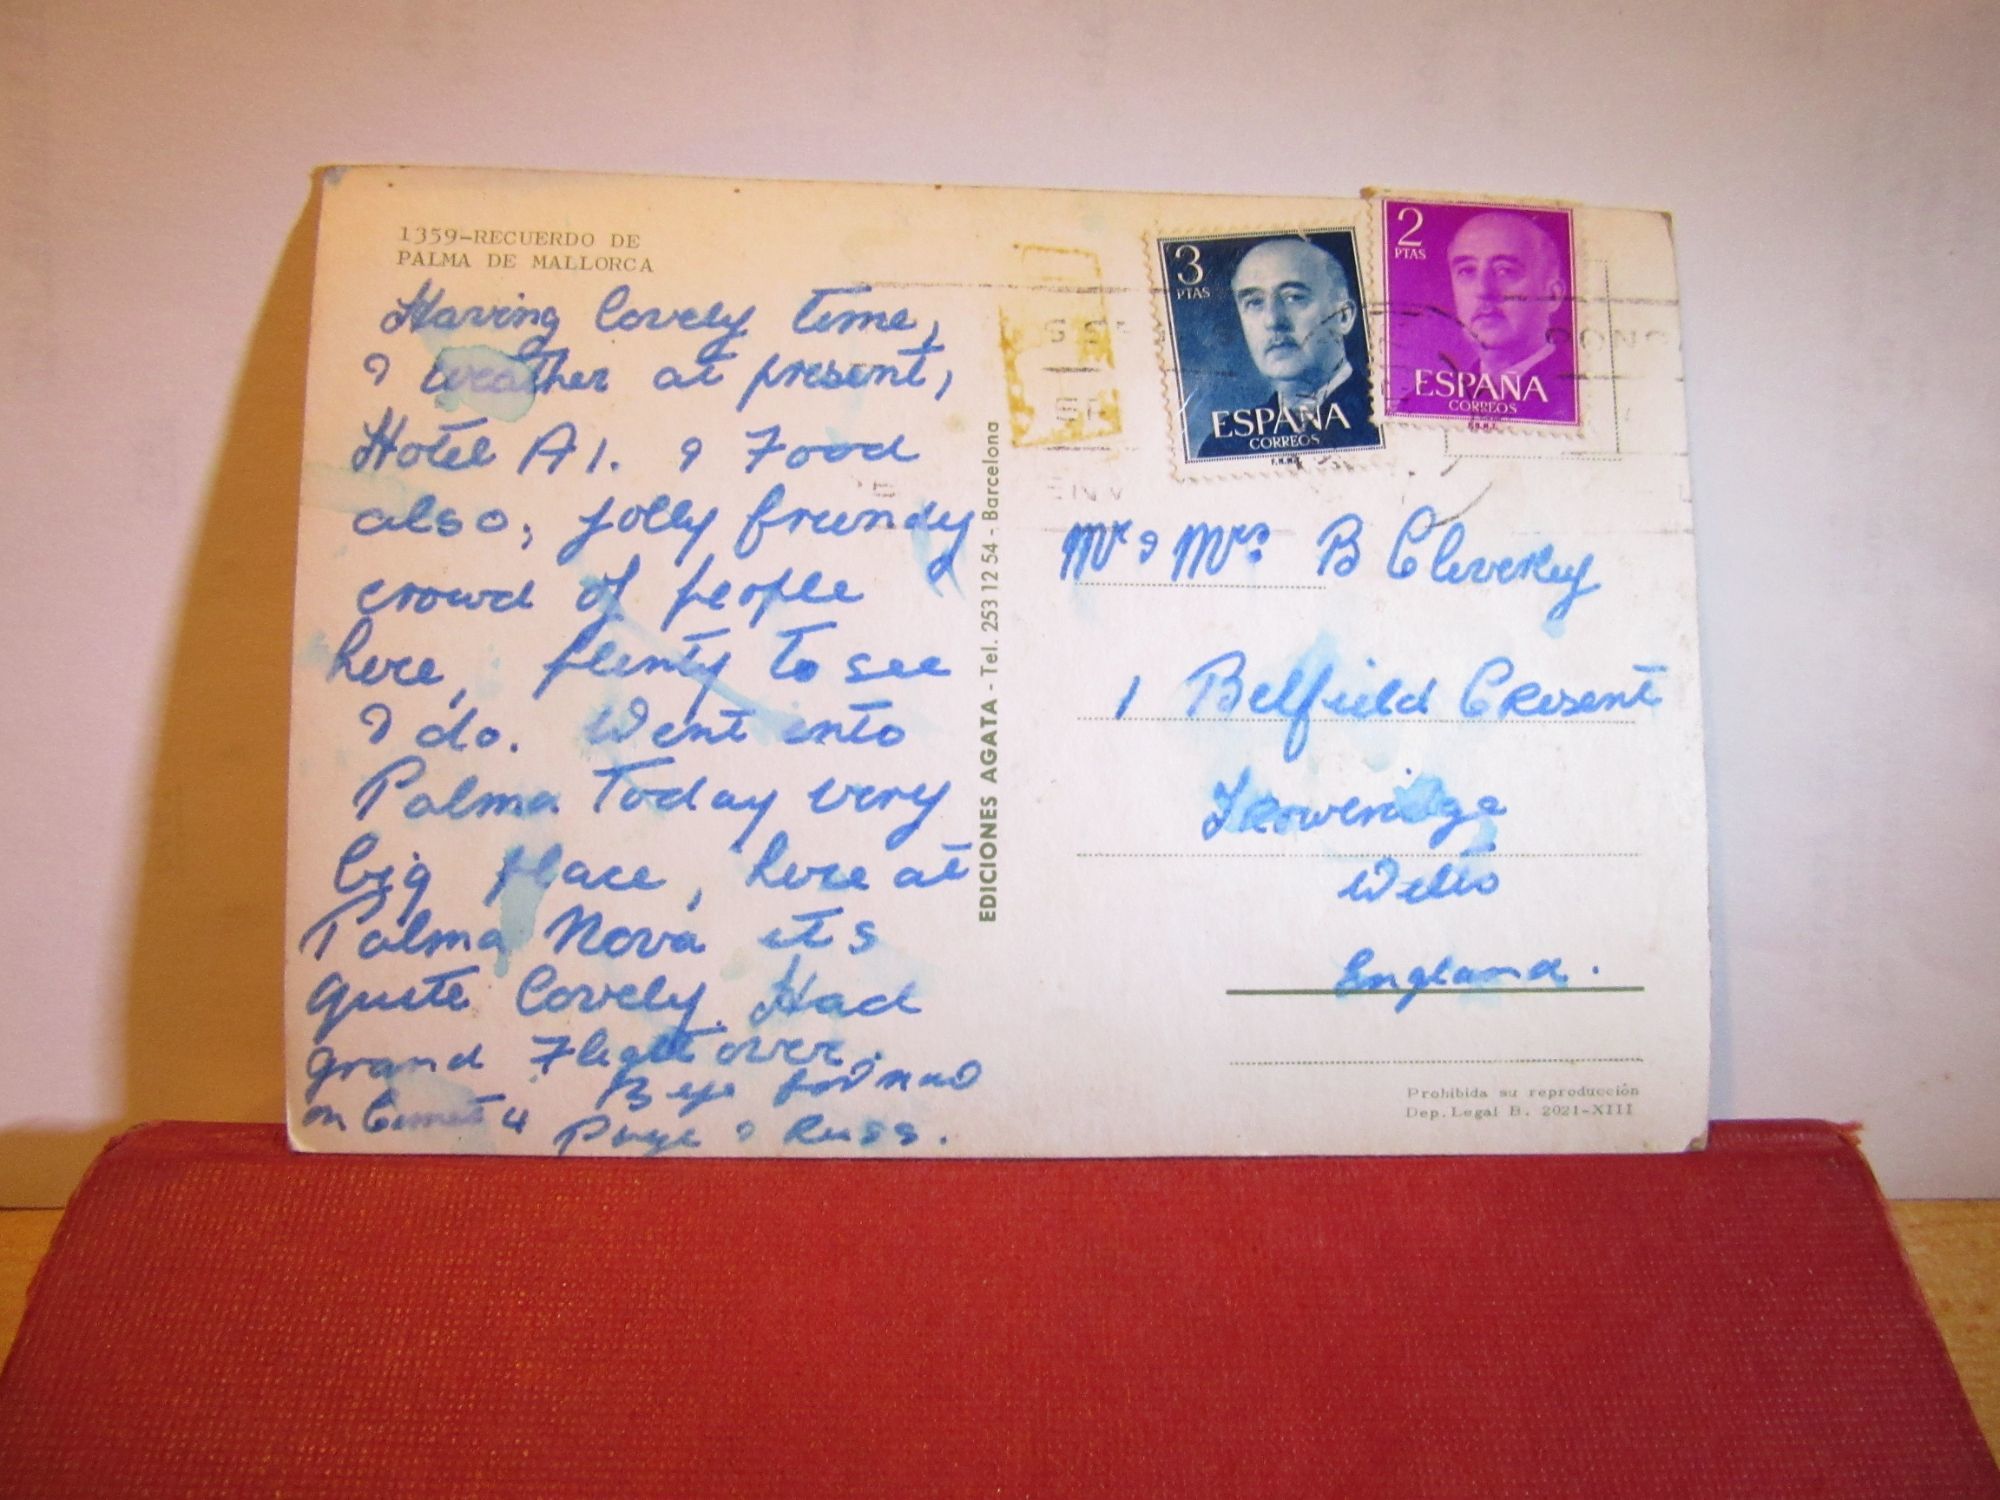 1359-RECUERDO DE
PALMA DE MALLORCA
Having lovely time,
& weather at present,
Hotel A1. & Food
also, jolly friendly
crowd of people
here, plenty to see
& do. Went into
Palma Today very
big place, here at
Palma Nova its
quite lovely. Had
grand Flight over.
on time
Bye for now
& Russ.
EDICIONES AGATA - Tel. 253 12 54 - Barcelona
3
PTAS
ESPAÑA
CORREOS
F.N.M.T.
2
PTAS
ESPAÑA
CORREOS
F.N.M.T.
Mr & Mrs B Cleverley
1 Belfield Cresent
Trowbridge
Wilts
England.
Prohibida su reproducción
Dep. Legal B. 2021-XIII